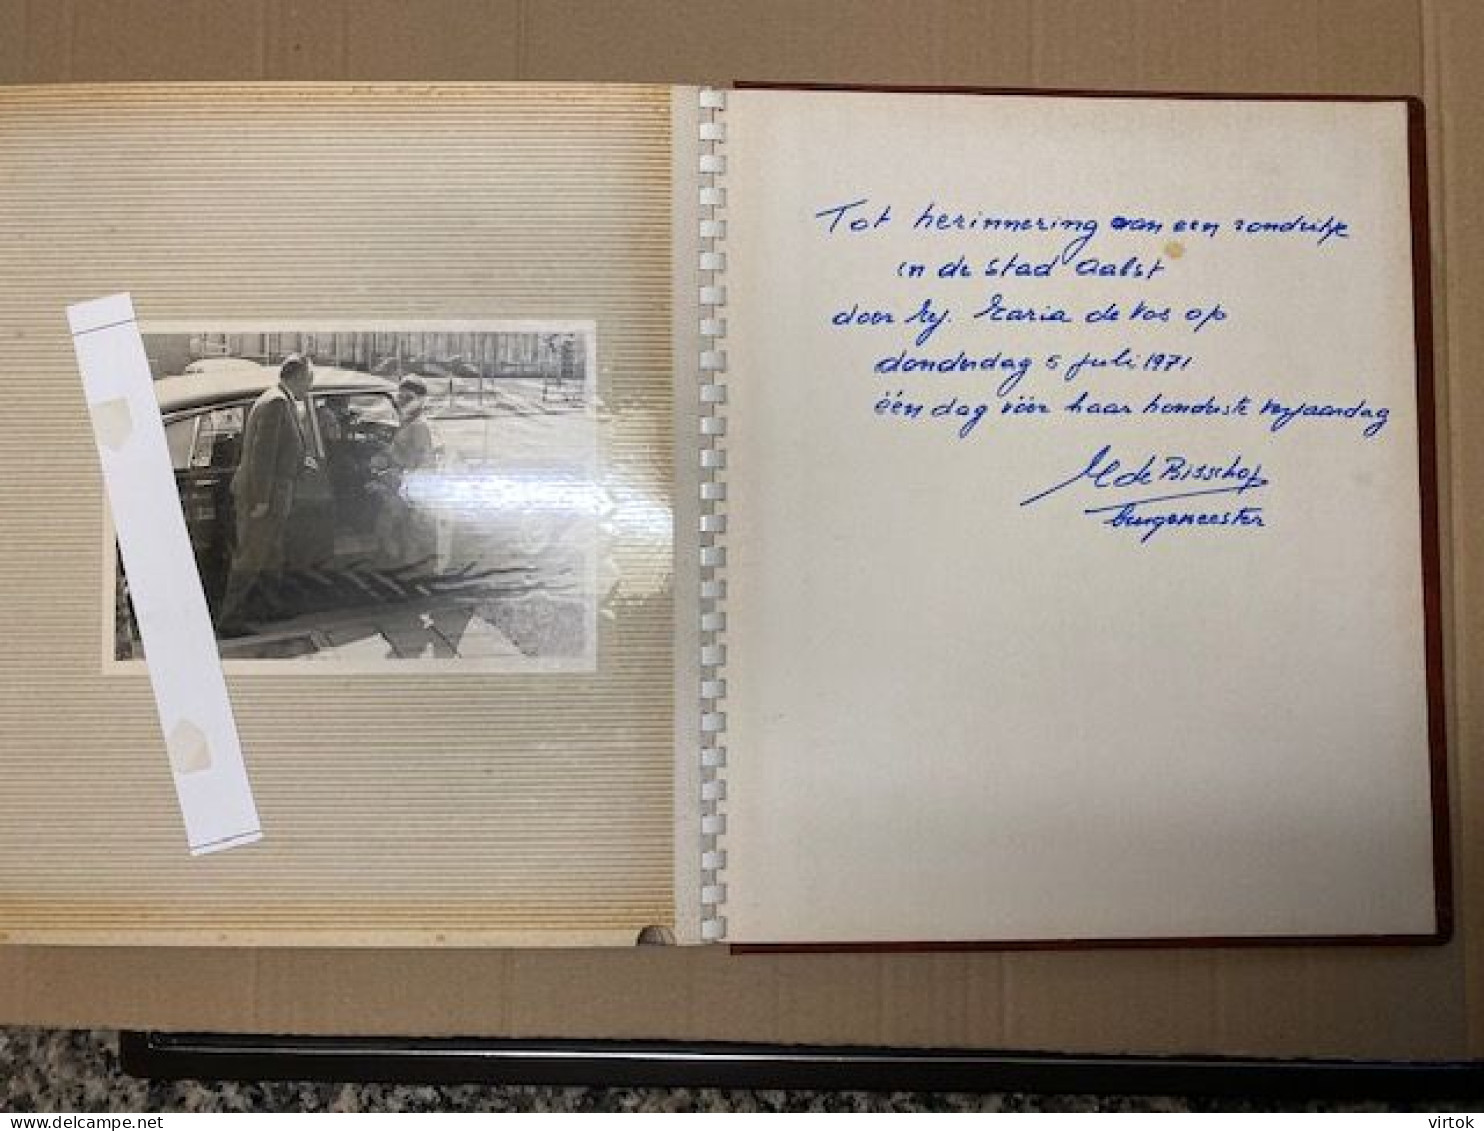 Tot herinnering aan een rondritje
in de stad Aalst
door Mej. Maria de Vos op
donderdag 5 juli 1971
één dag vóór haar honderdste verjaardag
M de Bisschop
burgemeester
virtok